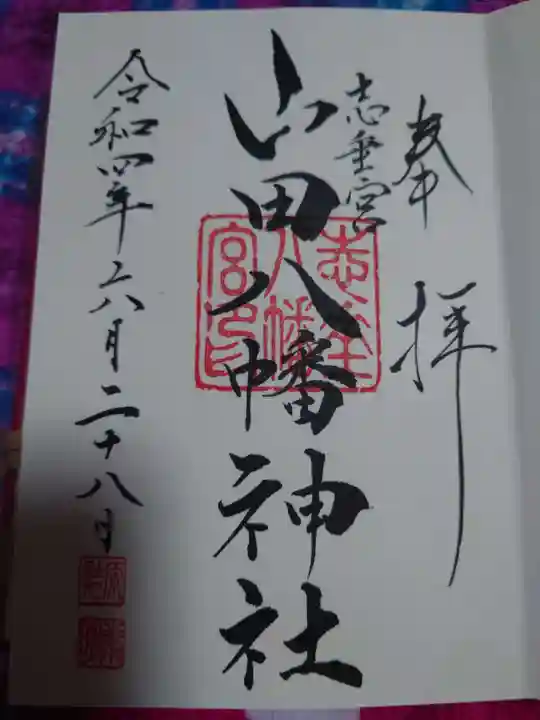 奉拝
志垂宮
山田八幡神社
志垂
八幡
宮印
令和四年六月二十八日